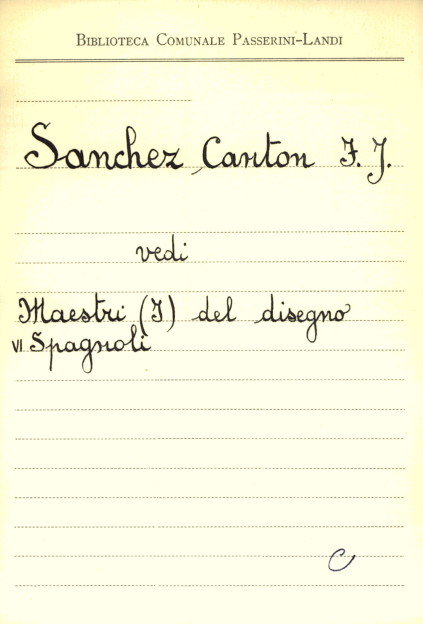 Biblioteca Comunale Passerini-Landi
Sanchez Canton F. J.
vedi
Maestri (I) del disegno
VI Spagnoli
C